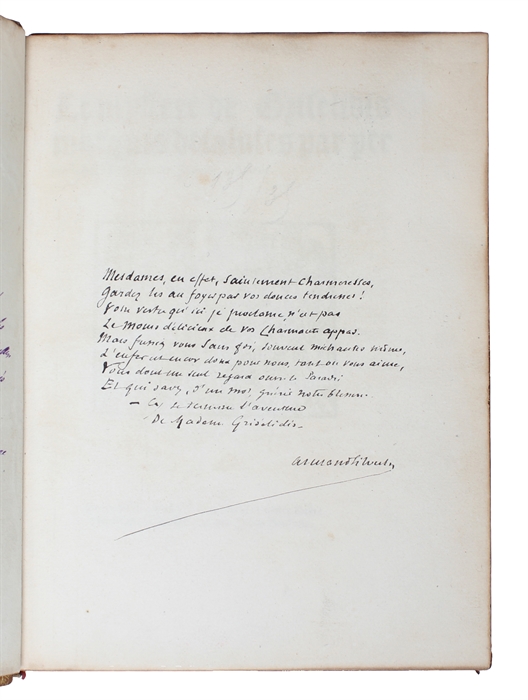 Mesdames, en effet, Saintement Charmeresses,
Gardez les au foyer par vos douces tendresses!
Votre vertu qu'ici je proclame n'est pas
Le moins délicieux de vos Charmants appas.
Mais fussiez vous Sans foi, souvent méchantes même,
L'enfer est encor doux pour nous, tant on vous aime,
Vous dont un seul regard ouvre le Paradis
Et qui savez, d'un mot, guérir notre
— Ca se termine l'aventure
De Madame Grisélidis
Armand Silvestre